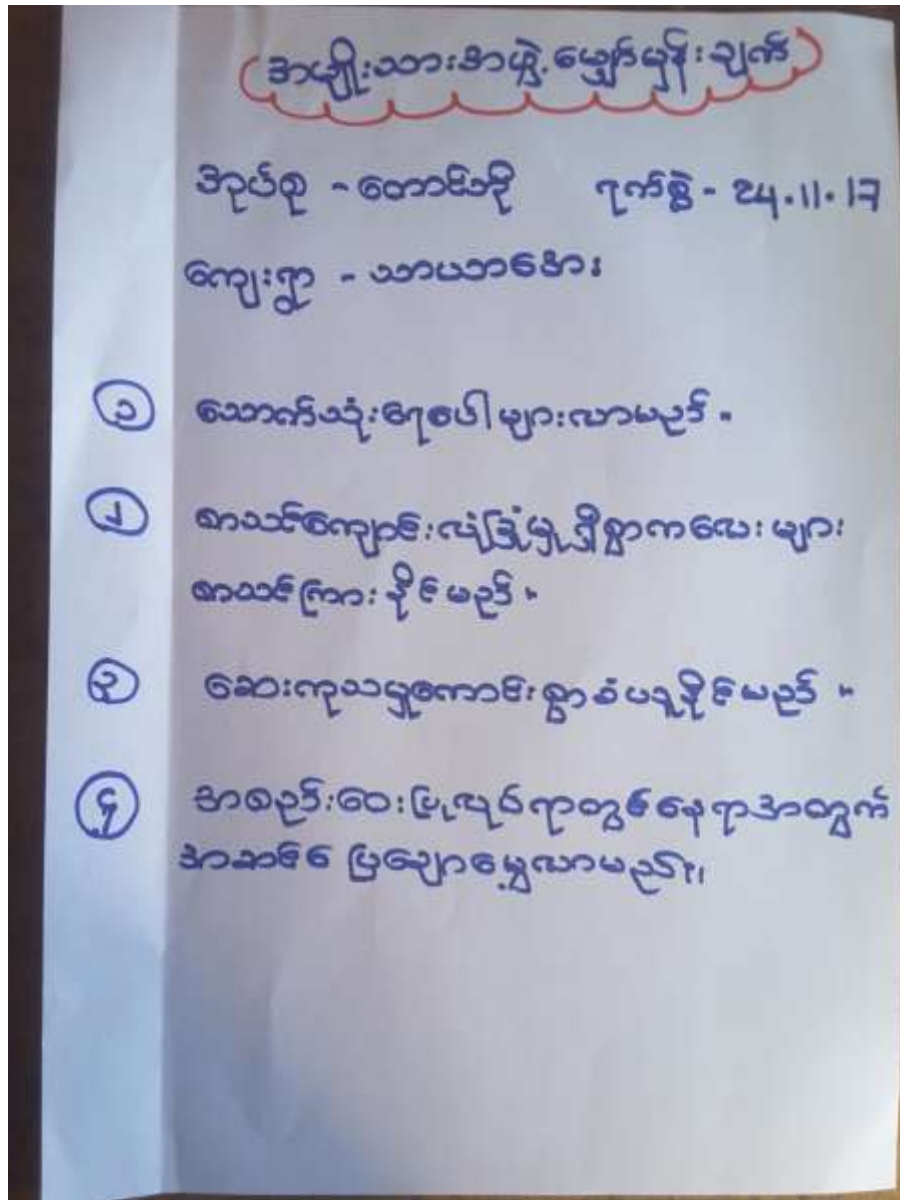 အမျိုးသားအဖွဲ့မျှော်မှန်းချက်
အုပ်စု - တောင်ဘို ရက်စွဲ - 24.11.17
ကျေးရွာ - သာယာအေး
၁ သောက်သုံးရေပေါများလာမည်။
၂ စာသင်ကျောင်းလုံခြုံမှုရှိစွာကလေးများ
စာသင်ကြားနိုင်မည်။
၃ ဆေးကုသမှုကောင်းစွာခံယူနိုင်မည်။
၄ အစည်းဝေးပြုလုပ်ရာတွင်နေရာအတွက်
အဆင်ပြေချောမွေ့လာမည်။